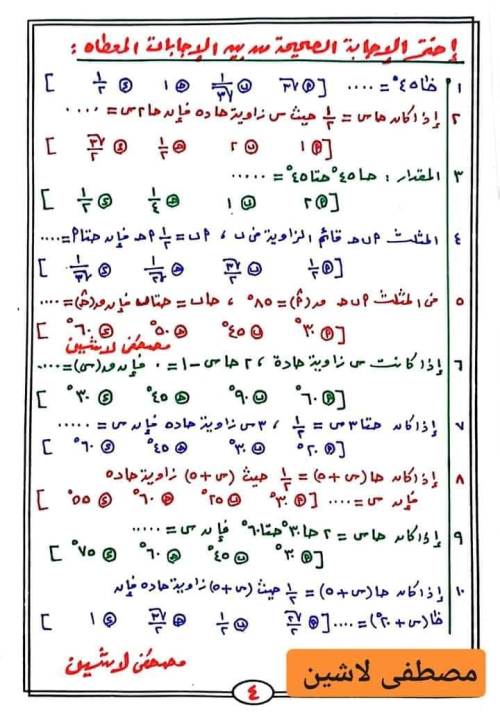 إختر الإجابة الصحيحة من بين الإجابات المعطاه :
١ ظا٤٥° = .... [ أ √٣ ب ١/√٣ ج ١ د ١/٢ ]
٢ إذا كان حا س = ١/٢ حيث س زاوية حاده فإن حا٢س = ....
[ أ ١ ب ٢ ج ١/٢ د √٣/٢ ]
٣ المقدار : حا٤٥° حتا٤٥° = .....
[ أ ٢ ب ١ ج ١/٤ د ١/٢ ]
٤ المثلث أ ب ج قائم الزاوية فى ب ، أ ب = ١/٢ أ ج فإن حتا أ = ....
[ أ ١/٢ ب √٣/٢ ج ١/√٢ د ١/√٣ ]
٥ فى المثلث أ ب ج ق(أ) = ٨٥° ، حا ب = حتا ب فإن ق(ج) = ....
[ أ ٣٠° ب ٤٥° ج ٥٠° د ٦٠° ]
مصطفى لاشين
٦ إذا كانت س زاوية حادة ، ٢ حا س - ١ = ٠ فإن ق(س) = ....
[ أ ٦٠° ب ٩٠° ج ٤٥° د ٣٠° ]
٧ إذا كان حتا٣س = ١/٢ ، ٣س زاوية حاده فإن س = .....
[ أ ٢٠° ب ٣٠° ج ٤٥° د ٦٠° ]
٨ إذا كان حا (س + ٥) = ١/٢ حيث (س + ٥) زاوية حاده
فإن س = .... [ أ ٣٠° ب ٢٥° ج ٦٠° د ٥٥° ]
٩ إذا كان حا س = ٢ حا٣٠° حتا٦٠° فإن س = .....
[ أ ٣٠° ب ٤٥° ج ٦٠° د ٧٥° ]
١٠ إذا كان حا (س + ٥) = ١/٢ حيث (س + ٥) زاوية حاده فإن
ظا (س + ٢٠°) = .... [ أ √٢/٢ ب ١/٢ ج √٣/٢ د ١ ]
مصطفى لاشين
مصطفى لاشين
٤